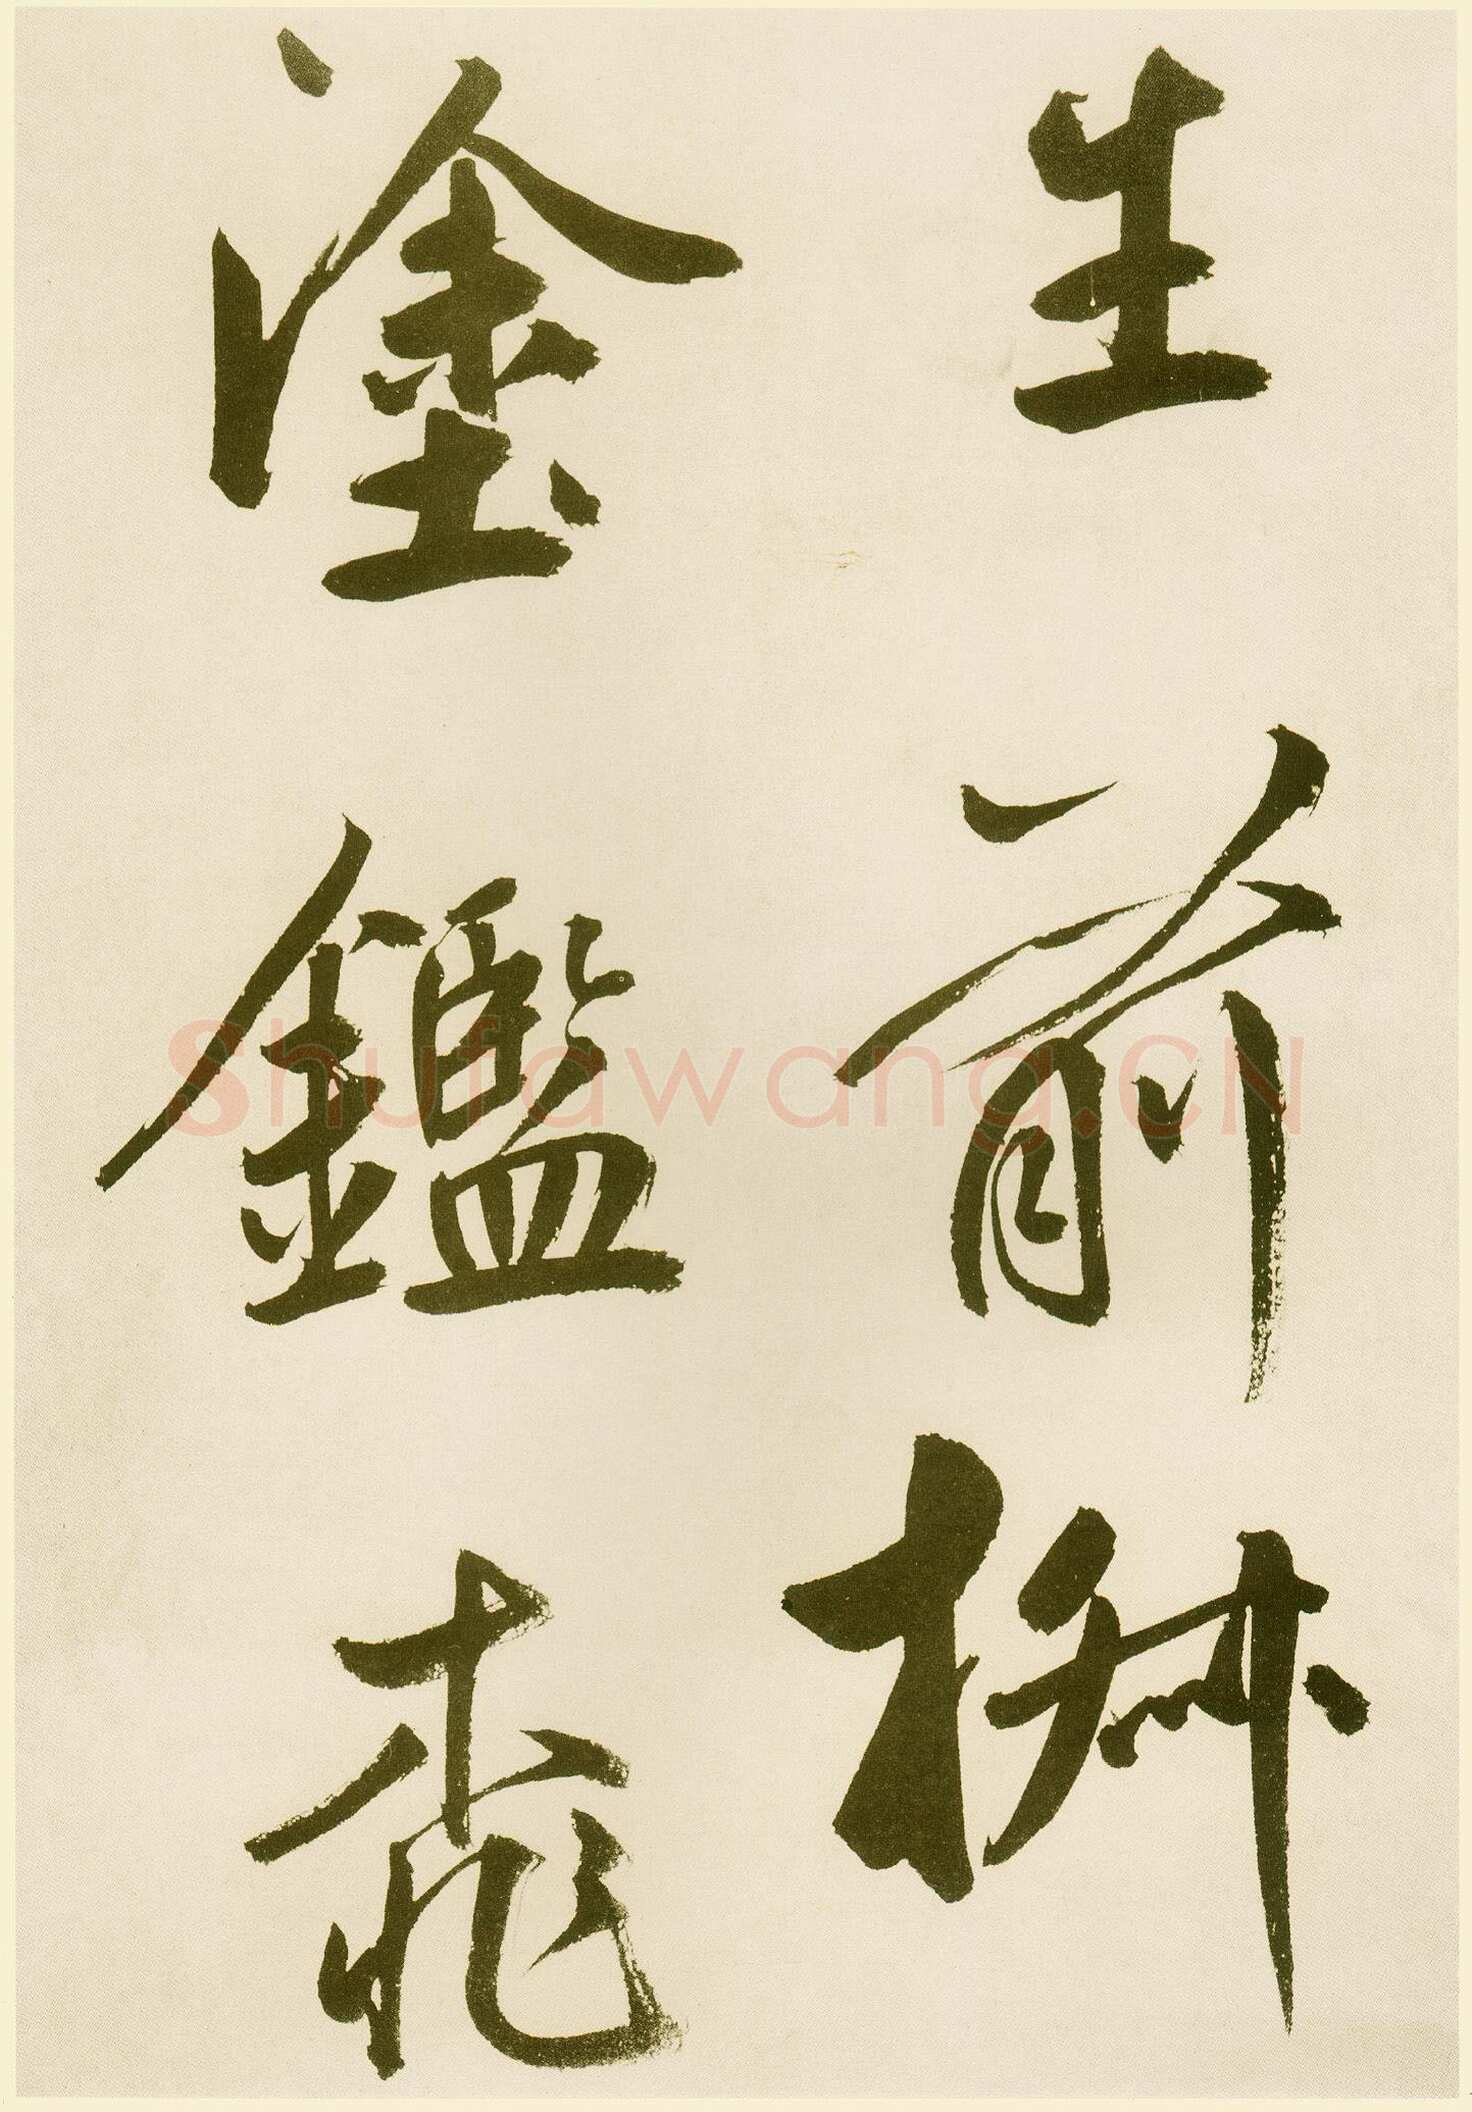 生前
塗鑑
Shufawang.CN